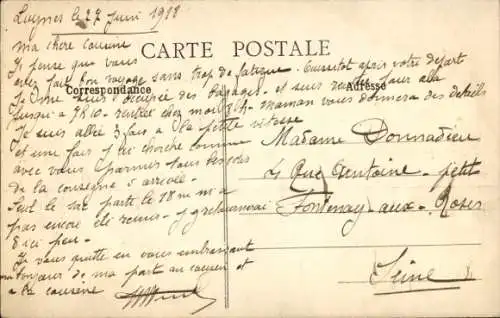 Luynes le 27 Juin 1918
ma chère cousine
CARTE POSTALE
Je pense que vous
avez fait bon voyage sans trop de fatigue. Aussitôt après votre départ
Correspondance
Adresse
Je me suis occupée des bagages et suis restée
jusqu'à 7h10 rentrée chez moi maman vous donnera des détails
Je suis allée 3 fois à la petite vitesse
et une fois j'ai cherché comme
avec vous parmi tous
de la consigne
Seul le sac parti le 18 m'a
pas encore été remis - j'y retournerai
d'ici peu -
Je vous quitte en vous embrassant
de ma part au cousin et
à la cousine
Madame Donnadieu
4 Rue petit
Fontenay-aux-Roses
Seine